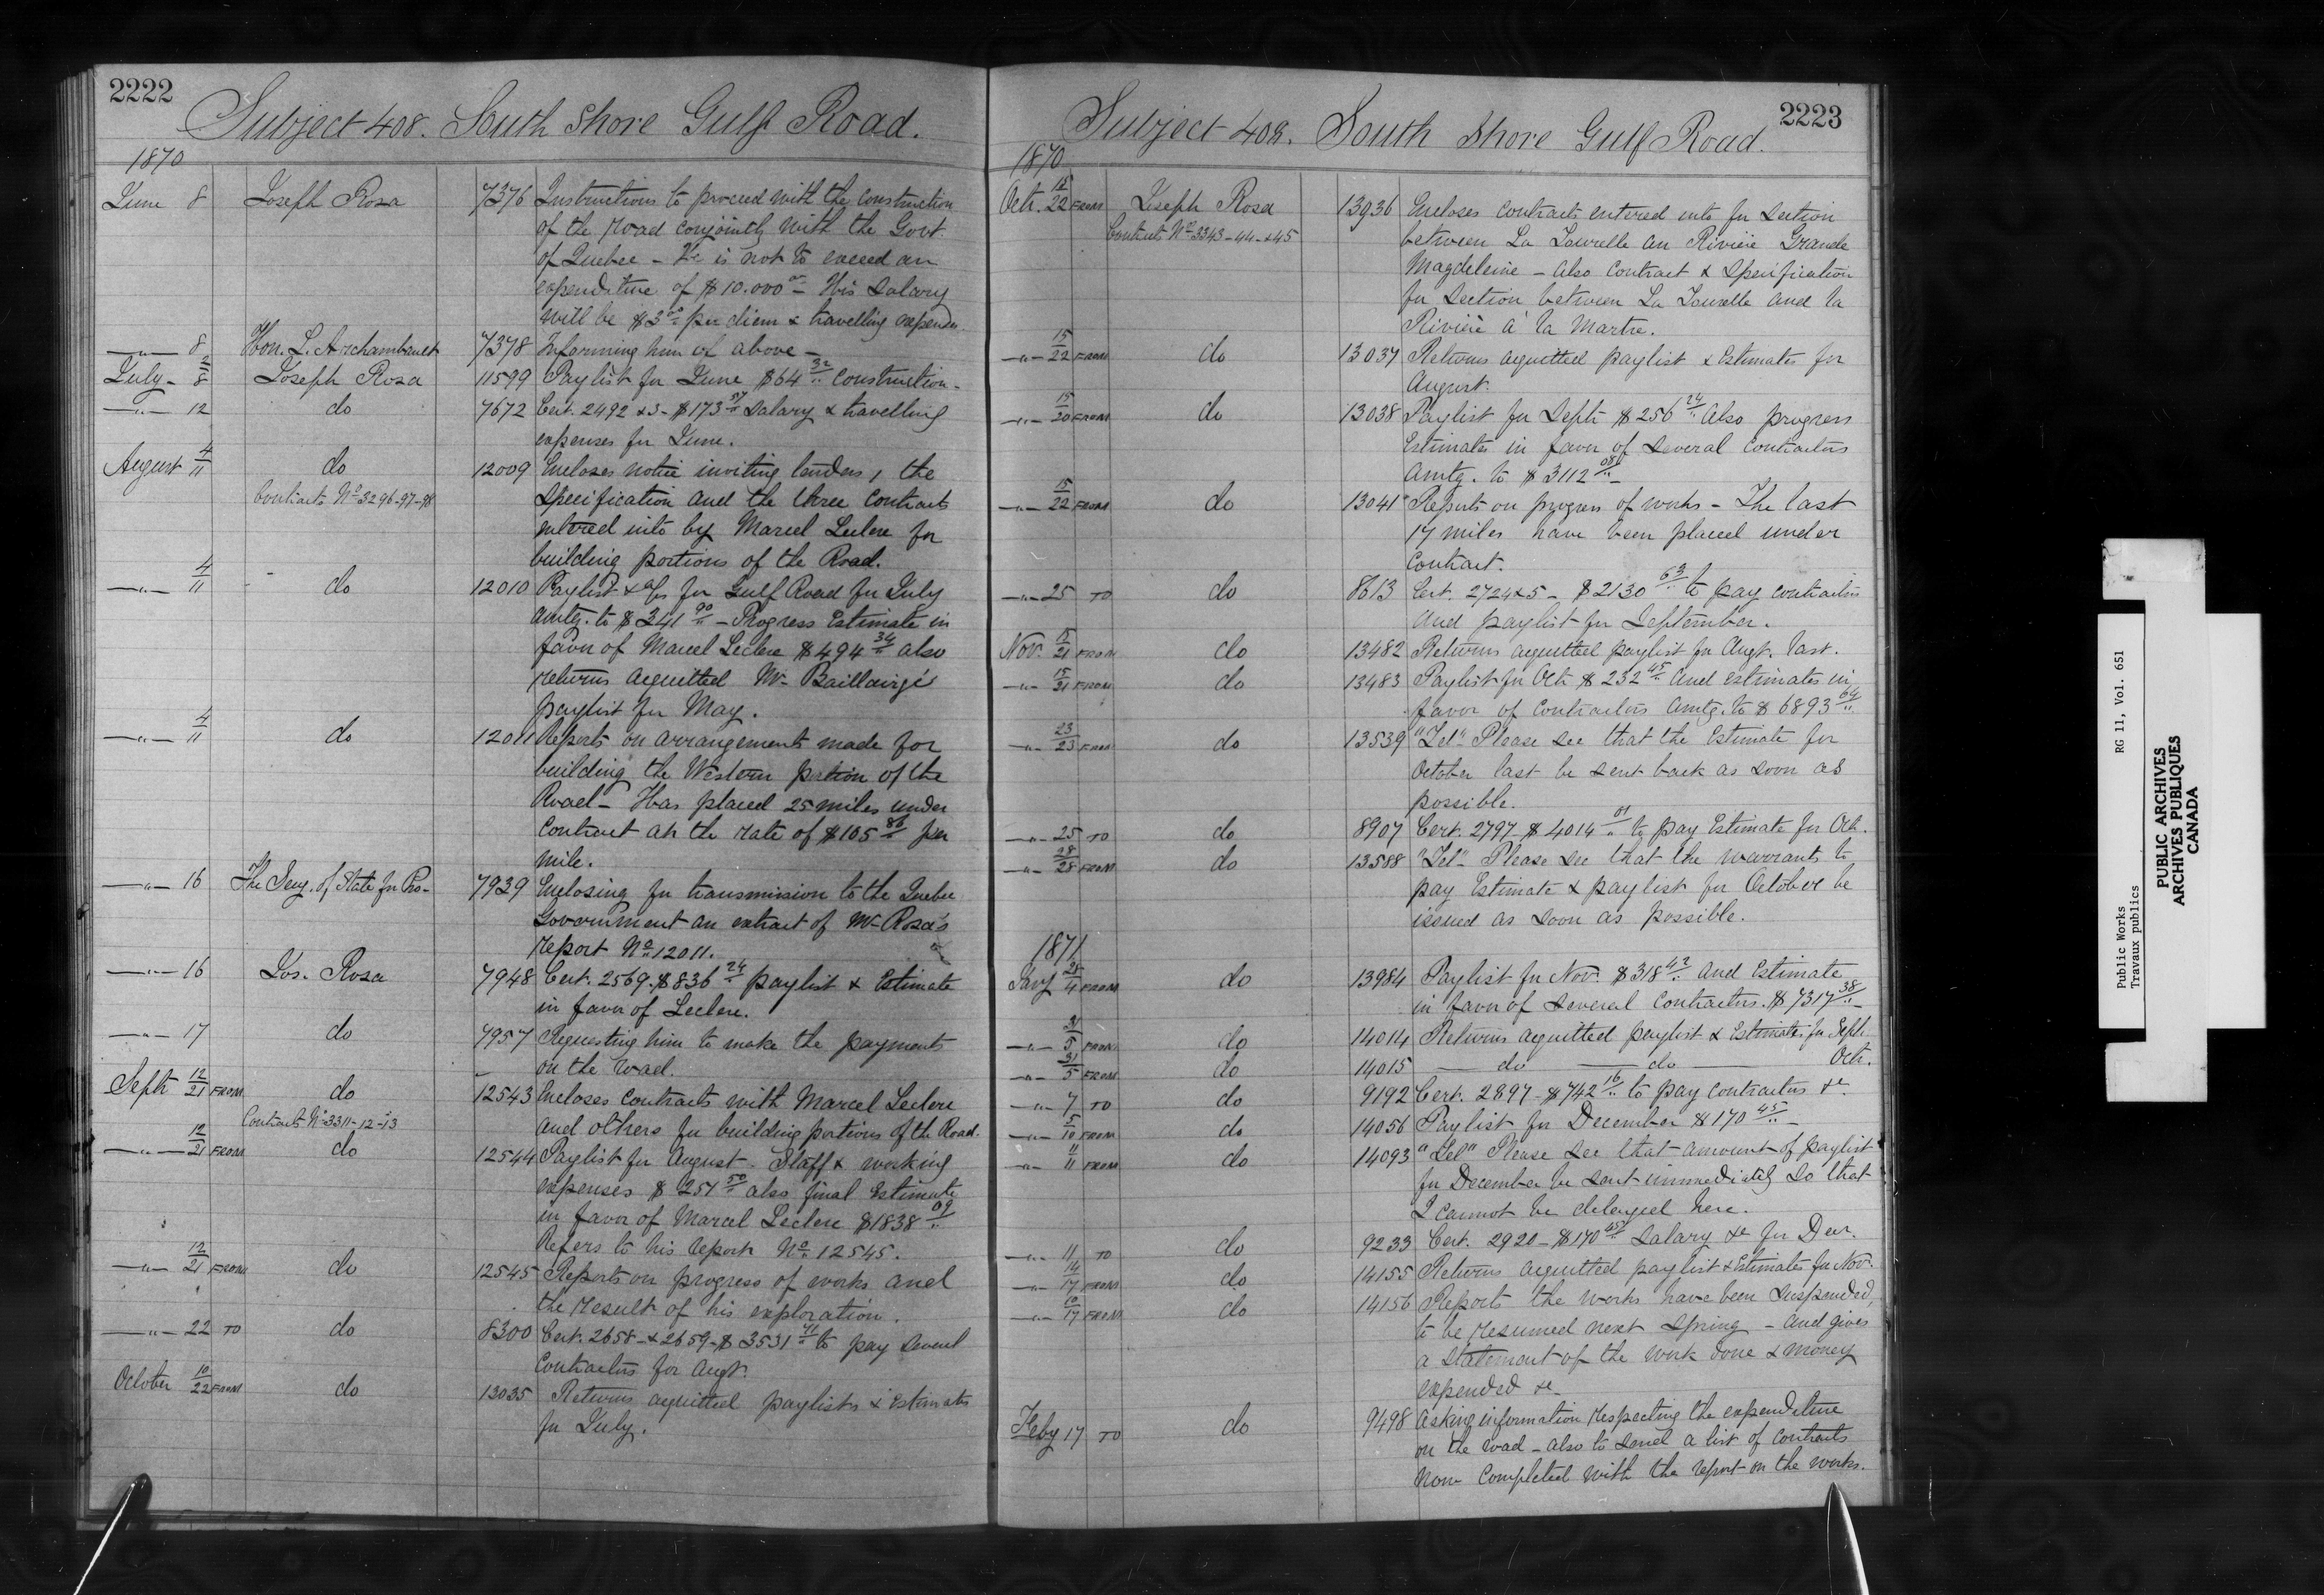 2222
Subject 408. South Shore Gulf Road.
1870
June 8 Joseph Rosa 7376 Instructions to proceed with the construction
of the road conjointly with the Govt.
of Quebec - He is not to exceed an
expenditure of $10.000 00 - His Salary
will be $3 00 per diem & travelling expenses.
—"— 8 Hon. L. Archambault 7378 Informing him of above -
July - 2/8 Joseph Rosa 11599 Paylist for June $64 32 construction -
—"— 12 do 7672 Cert. 2492 & 3 - $173 57 Salary & travelling
expenses for June.
August 4/11 do 12009 Encloses notice inviting tenders, the
Contracts No 3296-97-98 Specification and the three contracts
entered into by Marcel Leclerc for
building portions of the Road.
—"— 4/11 do 12010 Paylist & a/cs for Gulf Road for July
amtg. to $341 90 - Progress Estimate in
favor of Marcel Leclerc $494 34 also
returns acquitted Mr Baillairgé's
paylist for May.
—"— 4/11 do 12011 Reports on arrangements made for
building the Western portion of the
Road - Has placed 25 miles under
contract at the rate of $105 86 per
mile.
—"— 16 The Secy. of State for Pro- 7939 Enclosing for transmission to the Quebec
Government an extract of Mr Rosa's
report No 12011.
—"— 16 Jos. Rosa 7948 Cert. 2569. $836 24 paylist & Estimate
in favor of Leclerc.
—"— 17 do 7957 Requesting him to make the payments
on the road.
Septr 12/21 FROM do 12543 Encloses contracts with Marcel Leclerc
Contracts No 3311-12-13 and others for building portions of the Road.
—"— 12/21 FROM do 12544 Paylist for August. Staff & working
expenses $251 50 also final Estimate
in favor of Marcel Leclerc $1838 09
Refers to his report No 12545.
—"— 12/21 FROM do 12545 Reports on progress of works and
the result of his exploration.
—"— 22 TO do 8300 Cert. 2658 - & 2659 - $3531 71 to pay several
contractors for Augt.
October 10/22 FROM do 13035 Returns acquitted paylists & Estimates
for July.
2223
Subject 408. South Shore Gulf Road.
1870
Oct. 15/22 FROM Joseph Rosa 13936 Encloses contracts entered into for Section
Contracts No 3343-44-&45 between La Tourelle au Rivière Grande
Magdeleine - also contract & Specification
for Section between La Tourelle and la
Rivière à la Martre.
—"— 15/22 FROM do 13037 Returns acquitted paylist & Estimates for
August.
—"— 15/20 FROM do 13038 Paylist for Septr $256 24 also progress
Estimates in favor of several contractors
amtg. to $3112 08 -
—"— 15/22 FROM do 13041 Reports on progress of works - The last
17 miles have been placed under
contract.
—"— 25 TO do 8613 Cert. 2724 & 5 - $2130 63 to pay contractors
and paylist for September.
Nov. 15/21 FROM do 13482 Returns acquitted paylist for Augt. last.
—"— 15/21 FROM do 13483 Paylist for Oct. $232 45 and estimates in
favor of contractors amtg. to $6893 64
—"— 23/23 FROM do 13539 "Tel" Please see that the Estimate for
October last be sent back as soon as
possible.
—"— 25 TO do 8907 Cert. 2797 - $4014 01 to pay Estimate for Oct.
—"— 28/28 FROM do 13588 "Tel" Please see that the warrants to
pay Estimate & paylist for October be
issued as soon as possible.
1871
Jany 28/4 FROM do 13984 Paylist for Nov. $318 42 and Estimate
in favor of several contractors. $7317 38 -
—"— 31/5 FROM do 14014 Returns acquitted paylist & Estimates for Sept.
—"— 31/5 FROM do 14015 — do — do — Oct.
—"— 7 TO do 9192 Cert. 2897 - $742 16 to pay contractors &c
—"— 5/10 FROM do 14056 Paylist for December $170 45 -
—"— 11/11 FROM do 14093 "Tel" Please see that amount of paylist
for December be sent immediately so that
I cannot be delayed here.
—"— 11 TO do 9233 Cert. 2920 - $170 45 Salary &c for Decr.
—"— 14/17 FROM do 14155 Returns acquitted paylist & Estimates for Nov.
—"— 10/17 FROM do 14156 Reports the works have been suspended,
to be resumed next Spring - and gives
a statement of the work done & money
expended &c -
Feby 17 TO do 9498 Asking information respecting the expenditure
on the road - also to send a list of contracts
now completed with the report on the works.
Public Works RG 11, Vol. 651
Travaux publics
PUBLIC ARCHIVES
ARCHIVES PUBLIQUES
CANADA